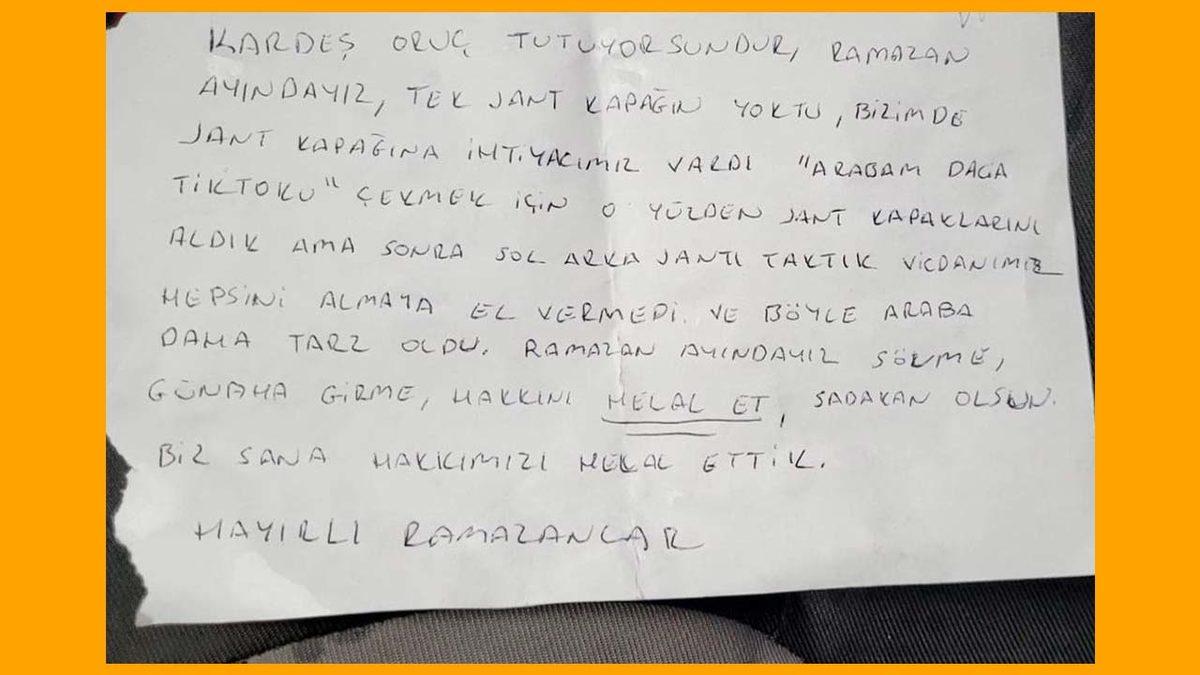 KARDEŞ ORUÇ TUTUYORSUNDUR, RAMAZAN
AYINDAYIZ, TEK JANT KAPAĞIN YOKTU, BİZİMDE
JANT KAPAĞINA İHTİYACIMIZ VARDI "ARABAM DAGA
TİKTOKU" ÇEKMEK İÇİN O YÜZDEN JANT KAPAKLARINI
ALDIK AMA SONRA SOL ARKA JANTI TAKTIK VİCDANIMIZ
HEPSİNİ ALMAYA EL VERMEDİ. VE BÖYLE ARABA
DAHA TARZ OLDU. RAMAZAN AYINDAYIZ SÖVME,
GÜNAHA GİRME, HAKKINI HELAL ET, SADAKAN OLSUN.
BİZ SANA HAKKIMIZI HELAL ETTİK.
HAYIRLI RAMAZANLAR